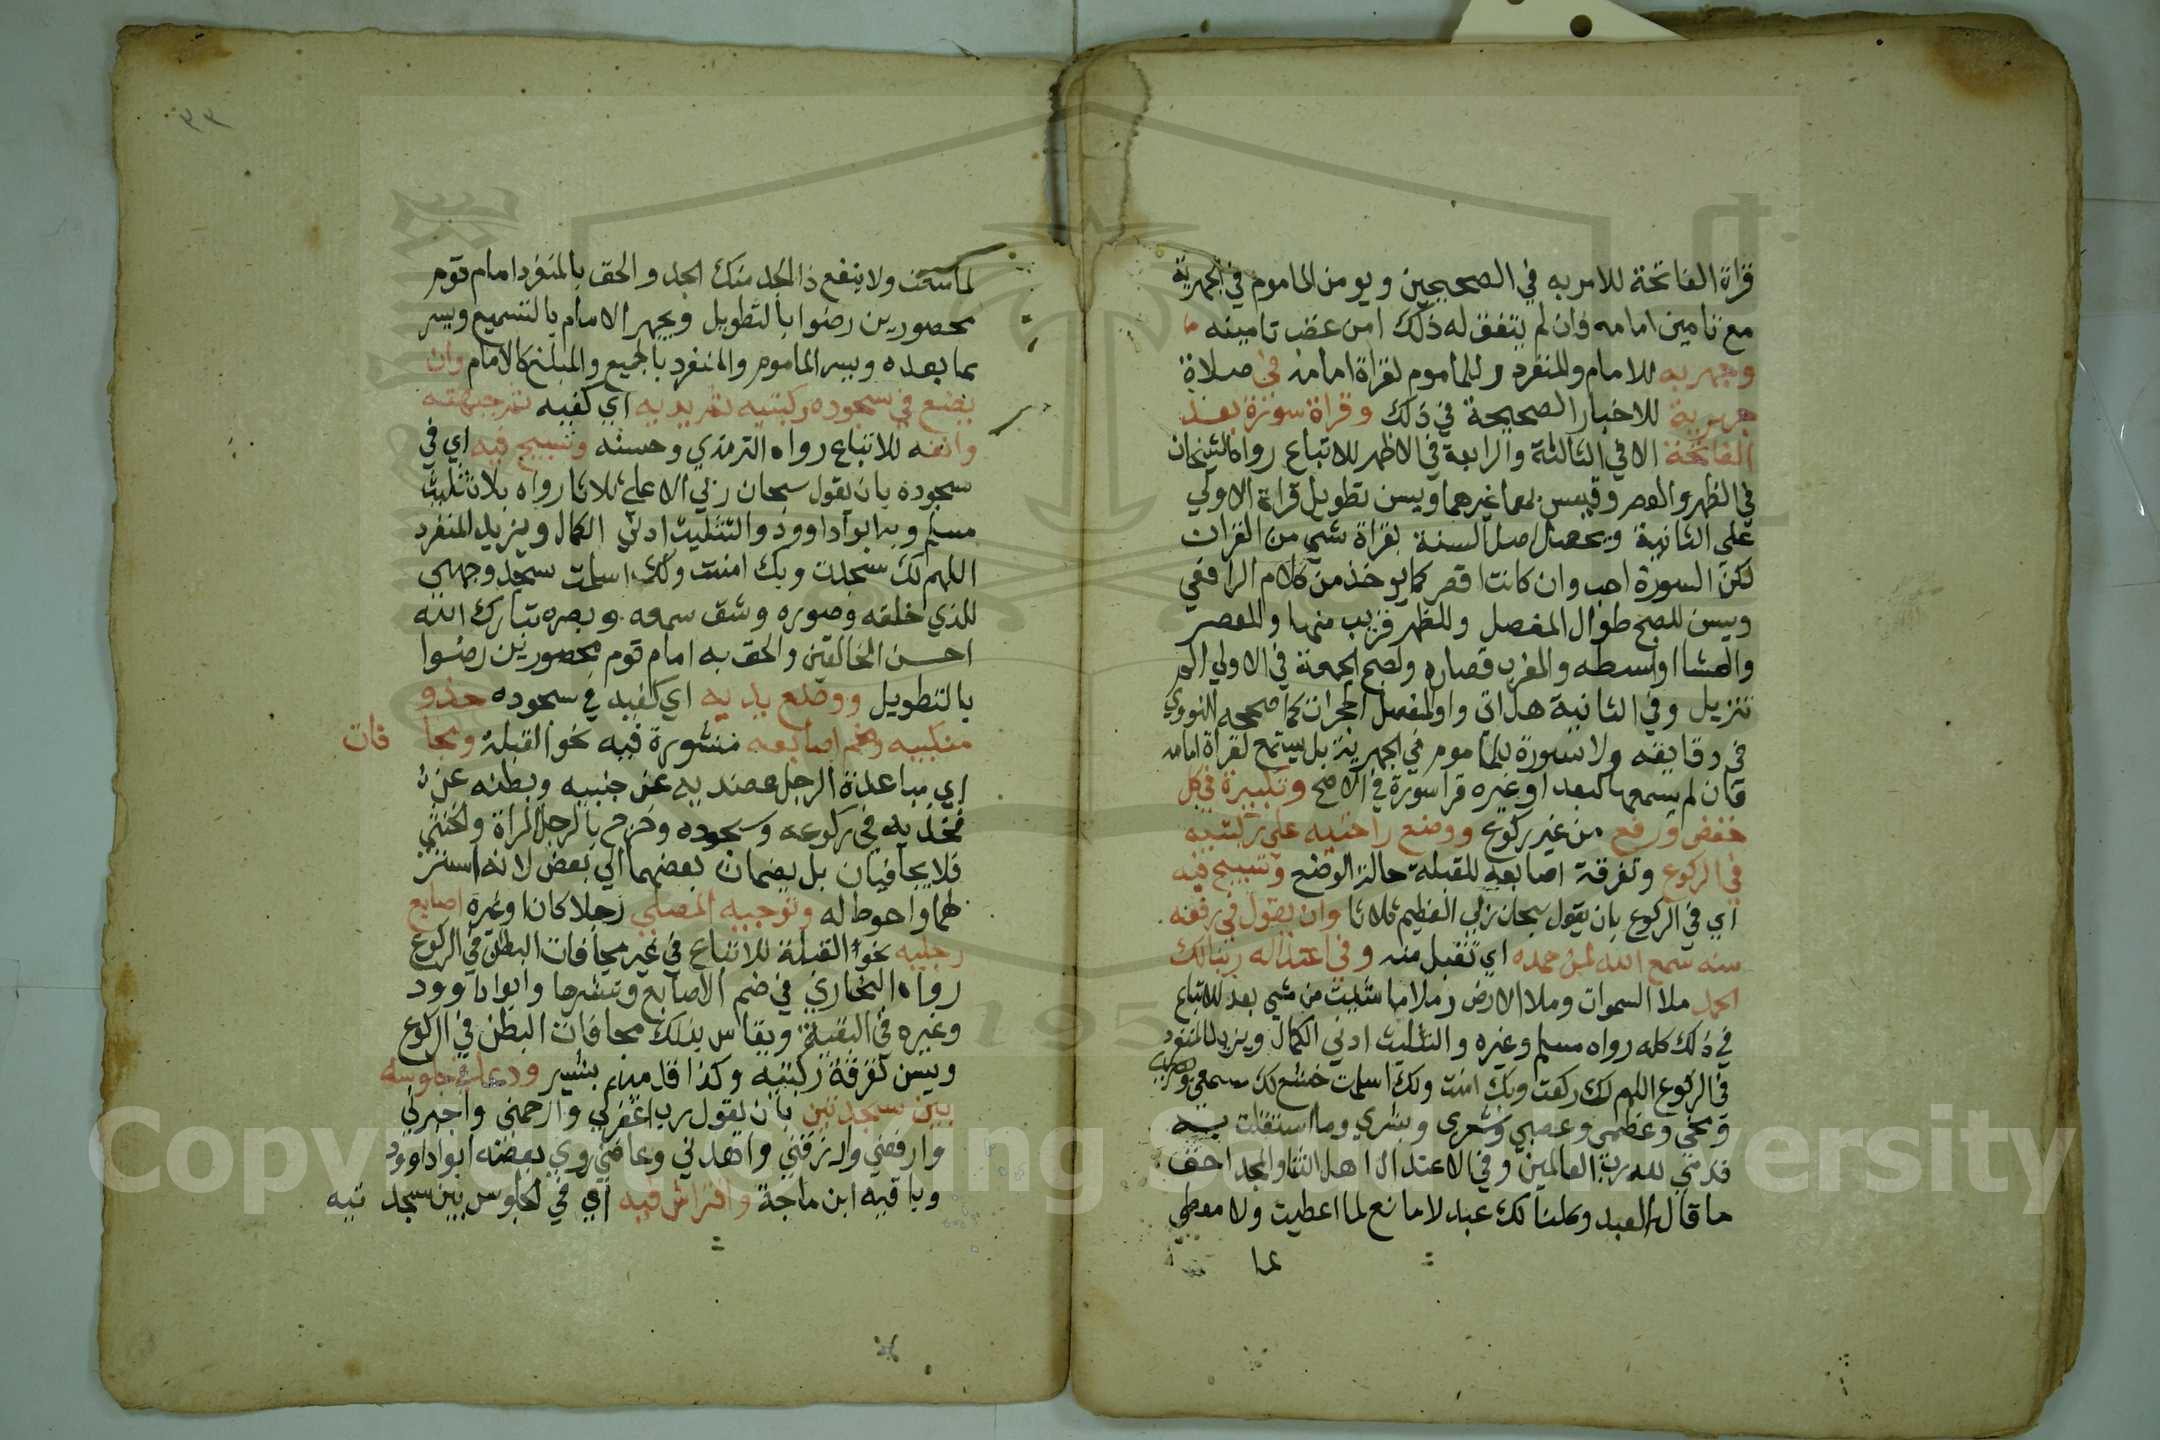 قراة الفاتحة للامر به في الصحيحين ويومن الماموم في الجهرية
مع تامين امامه فان لم يتفق له ذلك امن عقب تامينه
وجهر به للامام والمنفرد وللماموم لقراة امامه في صلاة
جهرية للاخبار الصحيحة في ذلك وقراة سورة بعد
الفاتحة الا في الثالثة والرابعة في الاظهر للاتباع رواه الشيخان
في الظهر والعصر وقيس بهما غيرهما ويسن تطويل قراة الاولي
علي الثانية ويحصل اصل السنة بقراة شي من القران
لكن السورة احب وان كانت اقصر كما يوخذ من كلام الرافعي
ويسن للصبح طوال المفصل وللظهر قريب منها وللعصر
والعشا اواسطه والمغرب قصاره ولصبح الجمعة في الاولي الم
تنزيل وفي الثانية هل اتي واول المفصل الحجرات كما صححه النووي
في دقايقه ولا سورة للماموم في الجهرية بل يستمع لقراة امامه
فان لم يسمعها لبعد او غيره قرا سورة في الاصح وتكبيرة في كل
خفض ورفع من غير ركوع ووضع راحتيه علي ركبتيه
في الركوع وتفرقة اصابعه للقبلة حالة الوضع وتسبيح فيه
اي في الركوع بان يقول سبحان ربي العظيم ثلاثا وان يقول في رفعه
منه سمع الله لمن حمده اي تقبل منه وفي اعتداله ربنا لك
الحمد ملا السموات وملا الارض وملا ما شيت من شي بعد للاتباع
في ذلك كله رواه مسلم وغيره والتثليث ادني الكمال ويزيد المنفرد
في الركوع اللهم لك ركعت وبك امنت ولك اسلمت خشع لك سمعي وبصري
ومخي وعظمي وعصبي وشعري وبشري وما استقلت به
قدمي لله رب العالمين وفي الاعتدال اهل الثنا والمجد احق
ما قال العبد وكلنا لك عبد لا مانع لما اعطيت ولا معطي
لما
٣٣
لما منعت ولا ينفع ذا الجد منك الجد والحق بالمنفرد امام قوم
محصورين رضوا بالتطويل ويجهر الامام بالتسميع ويسر
بما بعده ويسر الماموم والمنفرد بالجميع والمبلغ كالامام وان
يضع في سجوده ركبتيه ثم يديه اي كفيه ثم جبهته
وانفه للاتباع رواه الترمذي وحسنه وتسبيح فيه اي في
سجوده بان يقول سبحان ربي الاعلي ثلاثا رواه بلا تثليث
مسلم وبه ابو داوود والتثليث ادني الكمال ويزيد المنفرد
اللهم لك سجدت وبك امنت ولك اسلمت سجد وجهي
للذي خلقه وصوره وشق سمعه وبصره تبارك الله
احسن الخالقين والحق به امام قوم محصورين رضوا
بالتطويل ووضع يديه اي كفيه في سجوده حذو
منكبيه وضم اصابعه منشورة فيه نحو القبلة وتجا فات
اي مباعدة الرجل عضديه عن جنبيه وبطنه عن
فخذيه في ركوعه وسجوده وخرج بالرجل المراة والخنثي
فلا يجافيان بل يضمان بعضهما الي بعض لانه استر
لهما واحوط له وتوجيه المصلي رجلا كان او غيره اصابع
رجليه نحو القبلة للاتباع في غير مجافات البطن في الركوع
رواه البخاري في ضم الاصابع ونشرها وابو داوود
وغيره في البقية ويقاس بذلك مجافات البطن في الركوع
ويسن تفرقة ركبتيه وكذا قدميه بشبر ودعا في جلوسه
بين سجدتين بان يقول رب اغفر لي وارحمني واجبرني
وارفعني وارزقني واهدني وعافني روي بعضه ابو داوود
وباقيه ابن ماجة وافتراش فيه اي في الجلوس بين سجد تيه